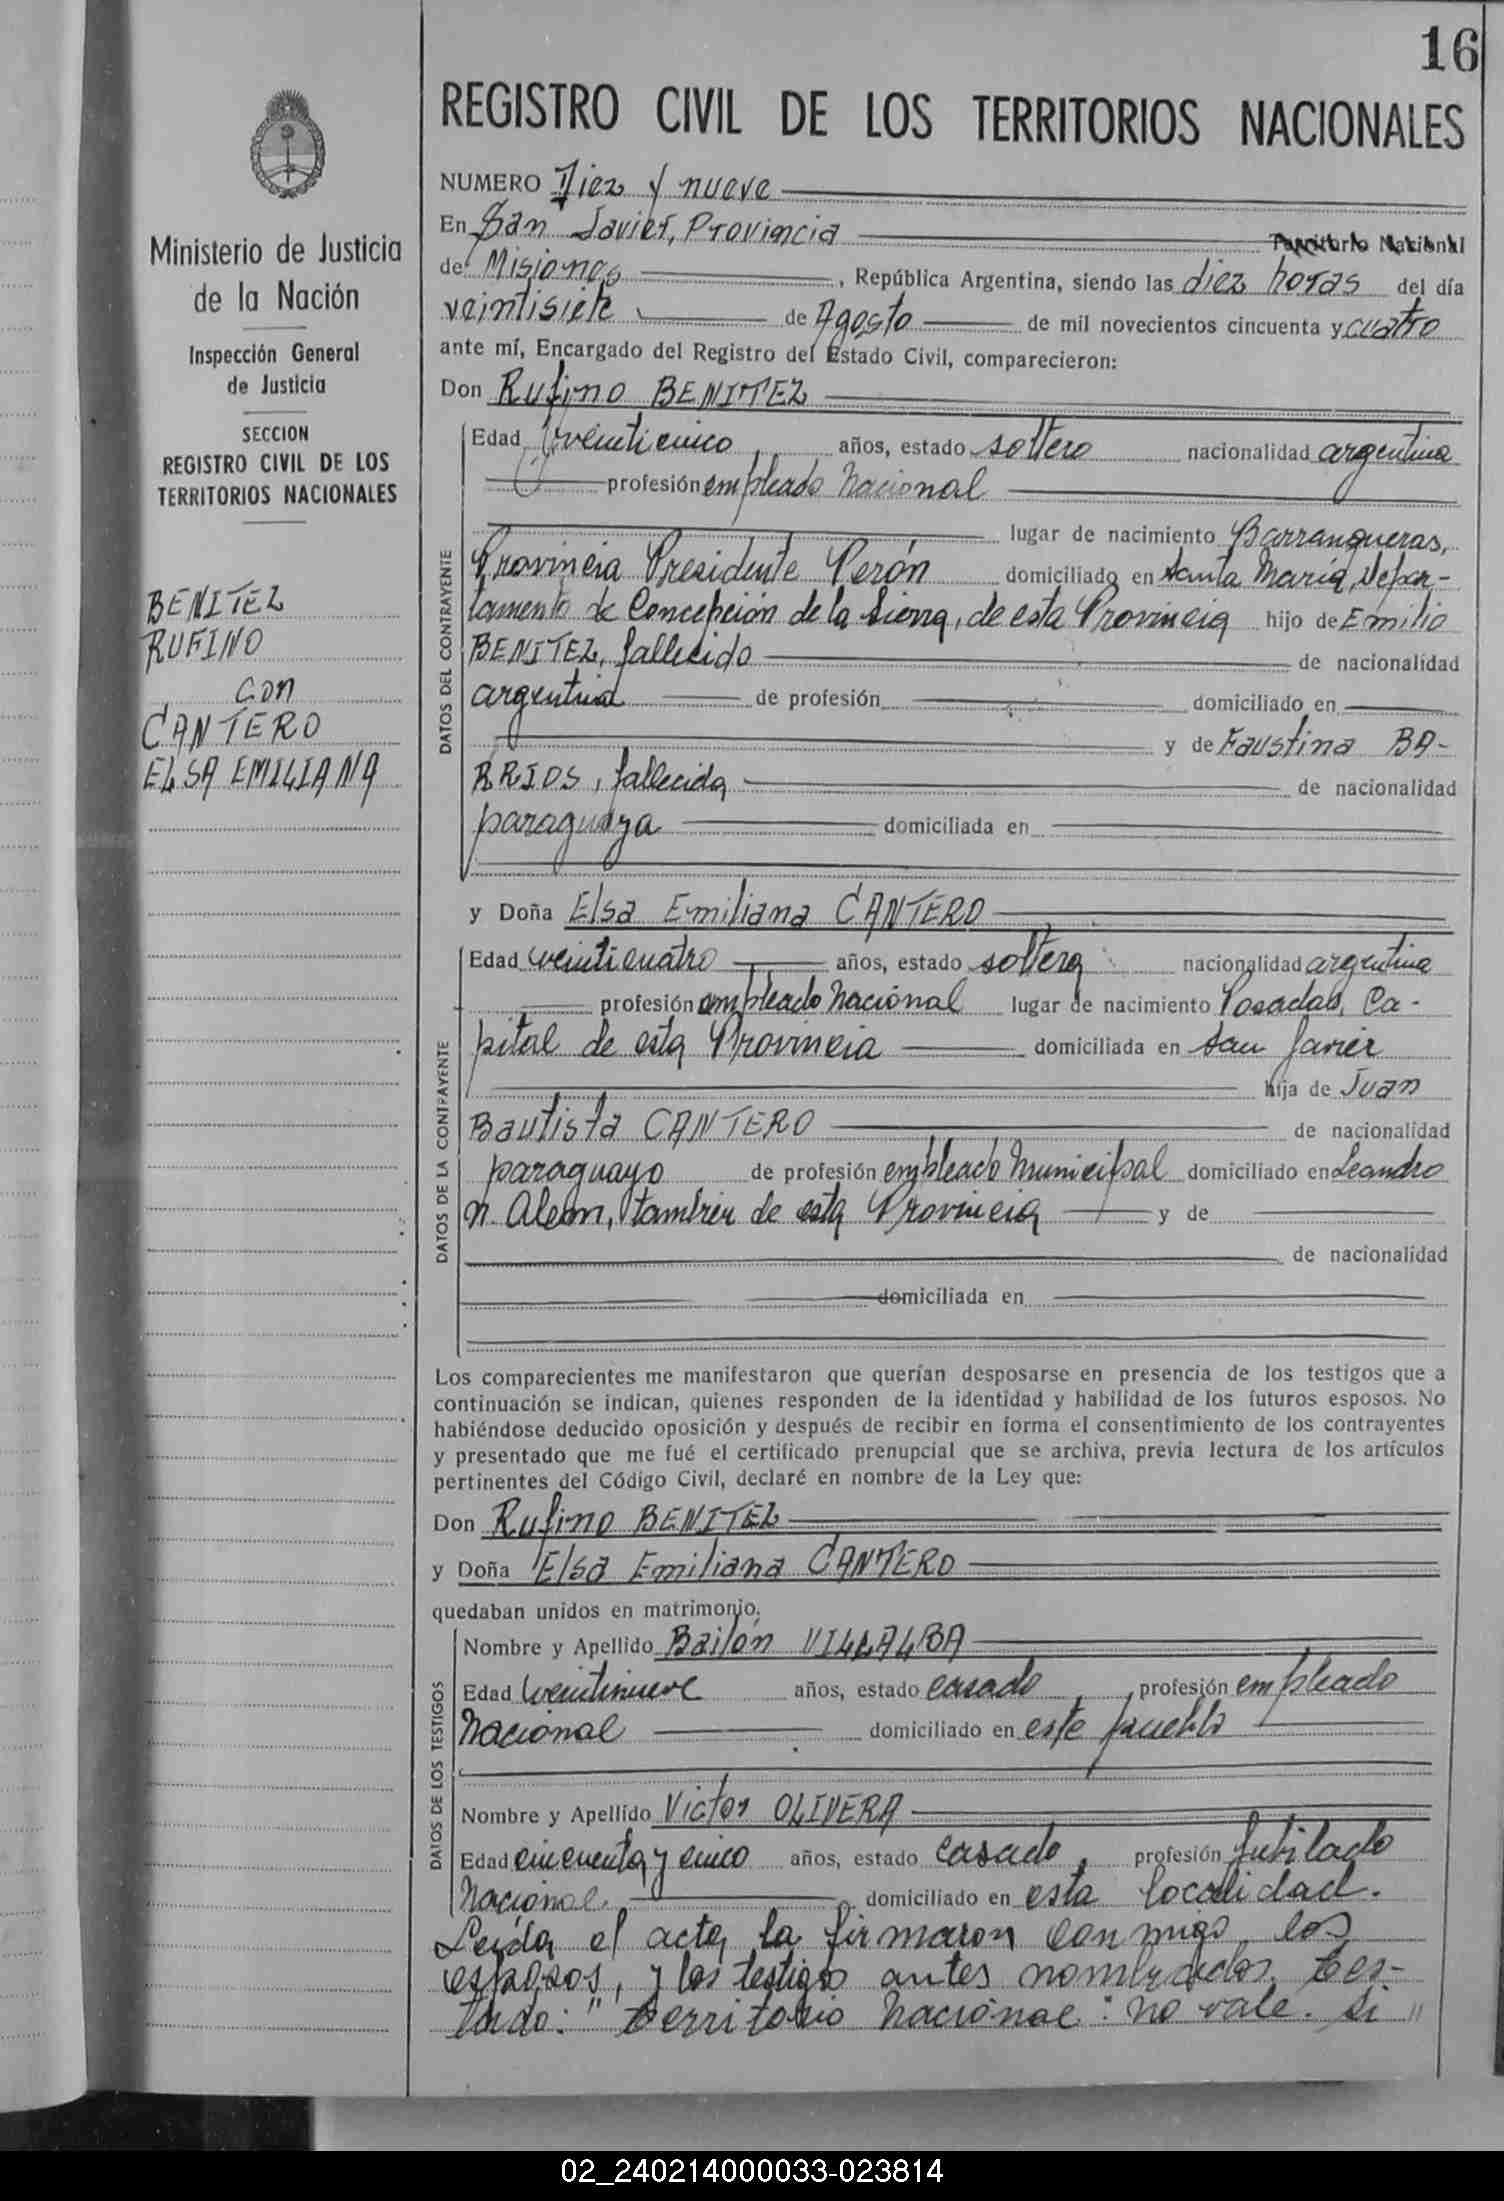 16
REGISTRO CIVIL DE LOS TERRITORIOS NACIONALES
Ministerio de Justicia
de la Nación
Inspección General
de Justicia
SECCION
REGISTRO CIVIL DE LOS
TERRITORIOS NACIONALES
BENITEZ
RUFINO
con
CANTERO
ELSA EMILIANA
NUMERO Diez y nueve
En San Javier, Provincia Territorio Nacional
de Misiones, República Argentina, siendo las diez horas del día
veintisiete de Agosto de mil novecientos cincuenta y cuatro
ante mí, Encargado del Registro del Estado Civil, comparecieron:
Don Rufino BENITEZ
DATOS DEL CONTRAYENTE
Edad veinticinco años, estado soltero nacionalidad argentina
profesión empleado Nacional
lugar de nacimiento Barranqueras,
Provincia Presidente Perón domiciliado en Santa María, Depar-
tamento de Concepción de la Sierra, de esta Provincia hijo de Emilio
BENITEZ, fallecido de nacionalidad
argentina de profesión domiciliado en
y de Faustina BA-
RRIOS, fallecida de nacionalidad
paraguaya domiciliada en
y Doña Elsa Emiliana CANTERO
DATOS DE LA CONTRAYENTE
Edad veinticuatro años, estado soltera nacionalidad argentina
profesión empleado Nacional lugar de nacimiento Posadas, Ca-
pital de esta Provincia domiciliada en San Javier
hija de Juan
Bautista CANTERO de nacionalidad
paraguayo de profesión empleado Municipal domiciliado en Leandro
N. Alem, también de esta Provincia y de
de nacionalidad
domiciliada en
Los comparecientes me manifestaron que querían desposarse en presencia de los testigos que a
continuación se indican, quienes responden de la identidad y habilidad de los futuros esposos. No
habiéndose deducido oposición y después de recibir en forma el consentimiento de los contrayentes
y presentado que me fué el certificado prenupcial que se archiva, previa lectura de los artículos
pertinentes del Código Civil, declaré en nombre de la Ley que:
Don Rufino BENITEZ
y Doña Elsa Emiliana CANTERO
quedaban unidos en matrimonio.
DATOS DE LOS TESTIGOS
Nombre y Apellido Bailón VILLALBA
Edad veintinueve años, estado casado, profesión empleado
Nacional domiciliado en este pueblo
Nombre y Apellido Victor OLIVERA
Edad cincuenta y cinco años, estado casado, profesión Jubilado
Nacional. domiciliado en esta localidad.
Leída el acta, la firmaron conmigo, los
esposos, y los testigos antes nombrados. Tes-
tado: "Territorio Nacional": no vale. Si "
02_240214000033-023814